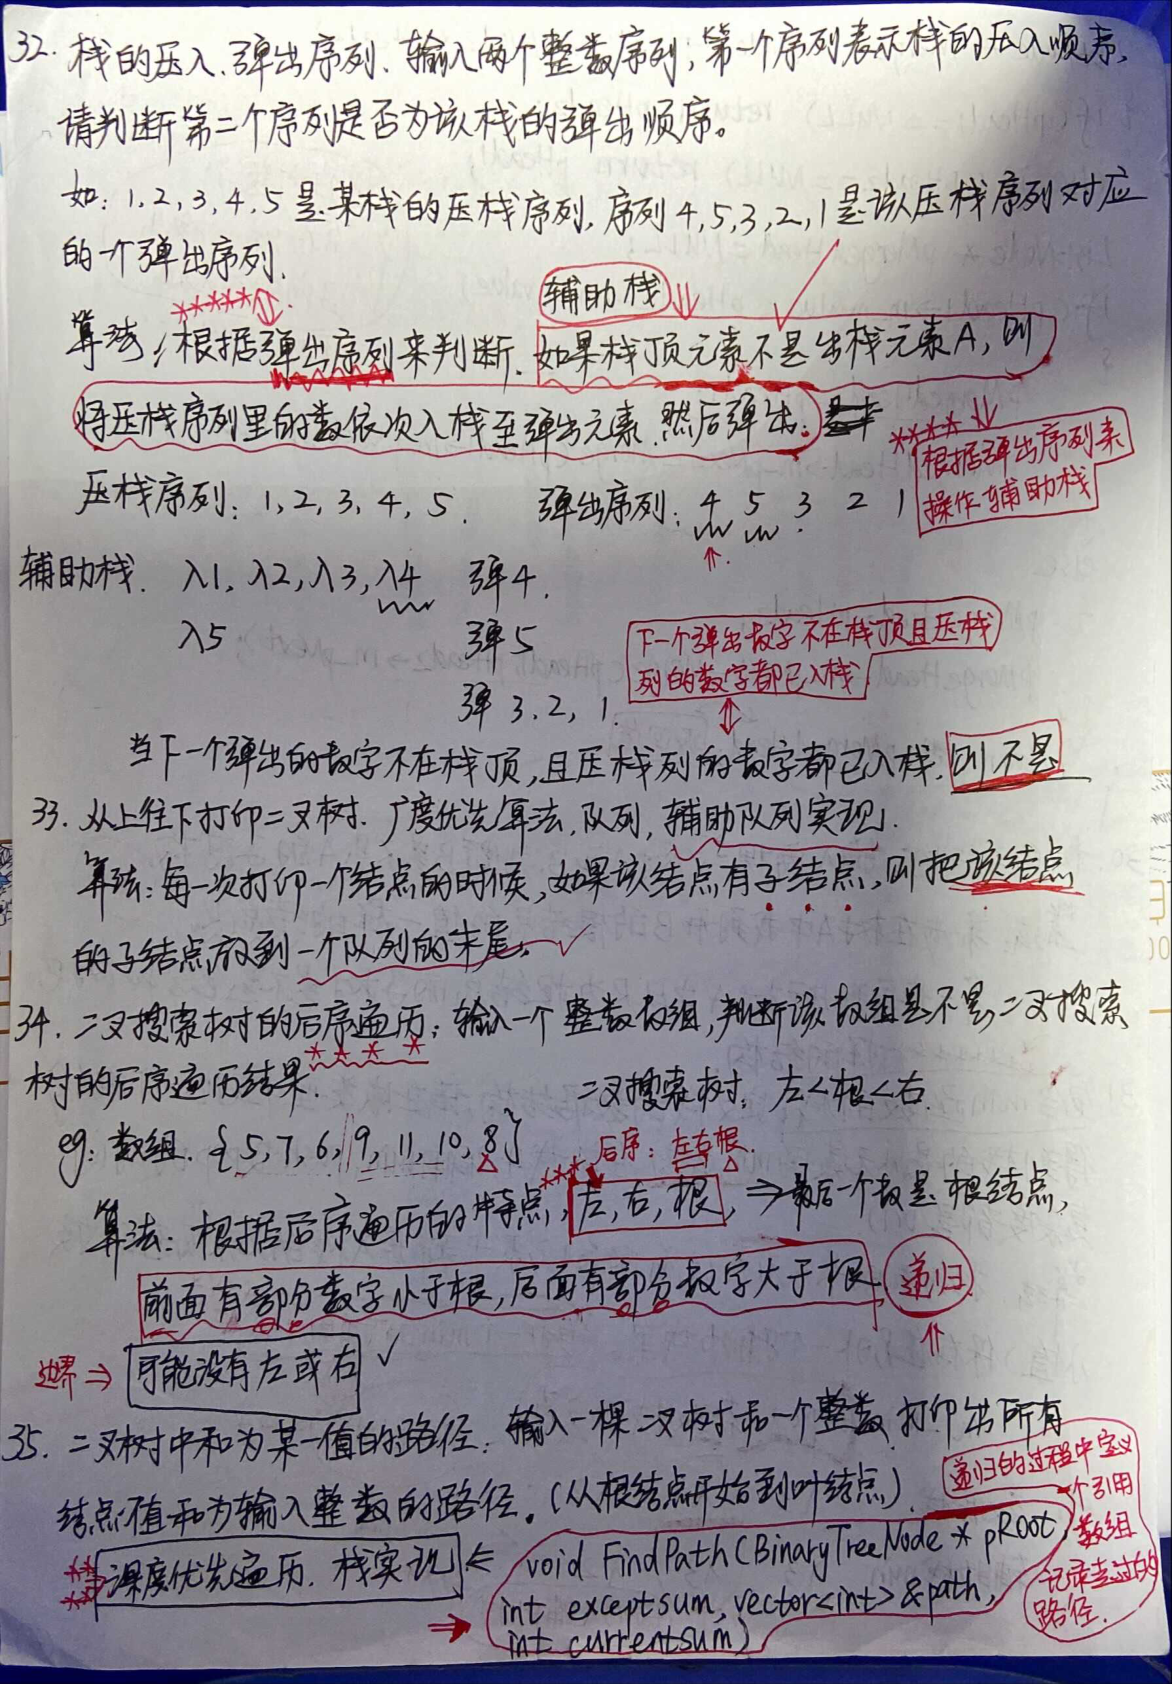 32. 栈的压入、弹出序列. 输入两个整数序列; 第一个序列表示栈的压入顺序,
请判断第二个序列是否为该栈的弹出顺序。
如: 1, 2, 3, 4, 5 是某栈的压栈序列, 序列 4, 5, 3, 2, 1 是该压栈序列对应
的一个弹出序列.
*****
辅助栈
算法: 根据弹出序列来判断. 如果栈顶元素不是出栈元素A, 则
将压栈序列里的数依次入栈至弹出元素. 然后弹出.
****
根据弹出序列来
操作辅助栈
压栈序列: 1, 2, 3, 4, 5. 弹出序列: 4 5 3 2 1
辅助栈. 入1, 入2, 入3, 入4 弹4.
入5 弹5
下一个弹出数字不在栈顶且压栈
列的数字都已入栈
弹 3, 2, 1.
当下一个弹出的数字不在栈顶, 且压栈列的数字都已入栈. 则不是
33. 从上往下打印二叉树. 广度优先算法, 队列, 辅助队列实现.
算法: 每一次打印一个结点的时候, 如果该结点有子结点, 则把该结点
的子结点放到一个队列的末尾. ✓
34. 二叉搜索树的后序遍历: 输入一个整数数组, 判断该数组是不是二叉搜索
****
树的后序遍历结果. 二叉搜索树: 左<根<右.
eg: 数组. {5, 7, 6, 9, 11, 10, 8} 后序: 左右根.
***
算法: 根据后序遍历的特点, 左, 右, 根, ⇒最后一个数是根结点,
前面有部分数字小于根, 后面有部分数字大于根 递归
边界 ⇒ 可能没有左或右 ✓
35. 二叉树中和为某一值的路径: 输入一棵二叉树和一个整数, 打印出所有
结点值和为输入整数的路径。(从根结点开始到叶结点)
递归的过程中定义
一个引用
数组
记录走过的
路径.
**
**
深度优先遍历. 栈实现 ⇐ void FindPath(BinaryTreeNode * pRoot
int exceptsum, vector<int> &path,
int currentsum)